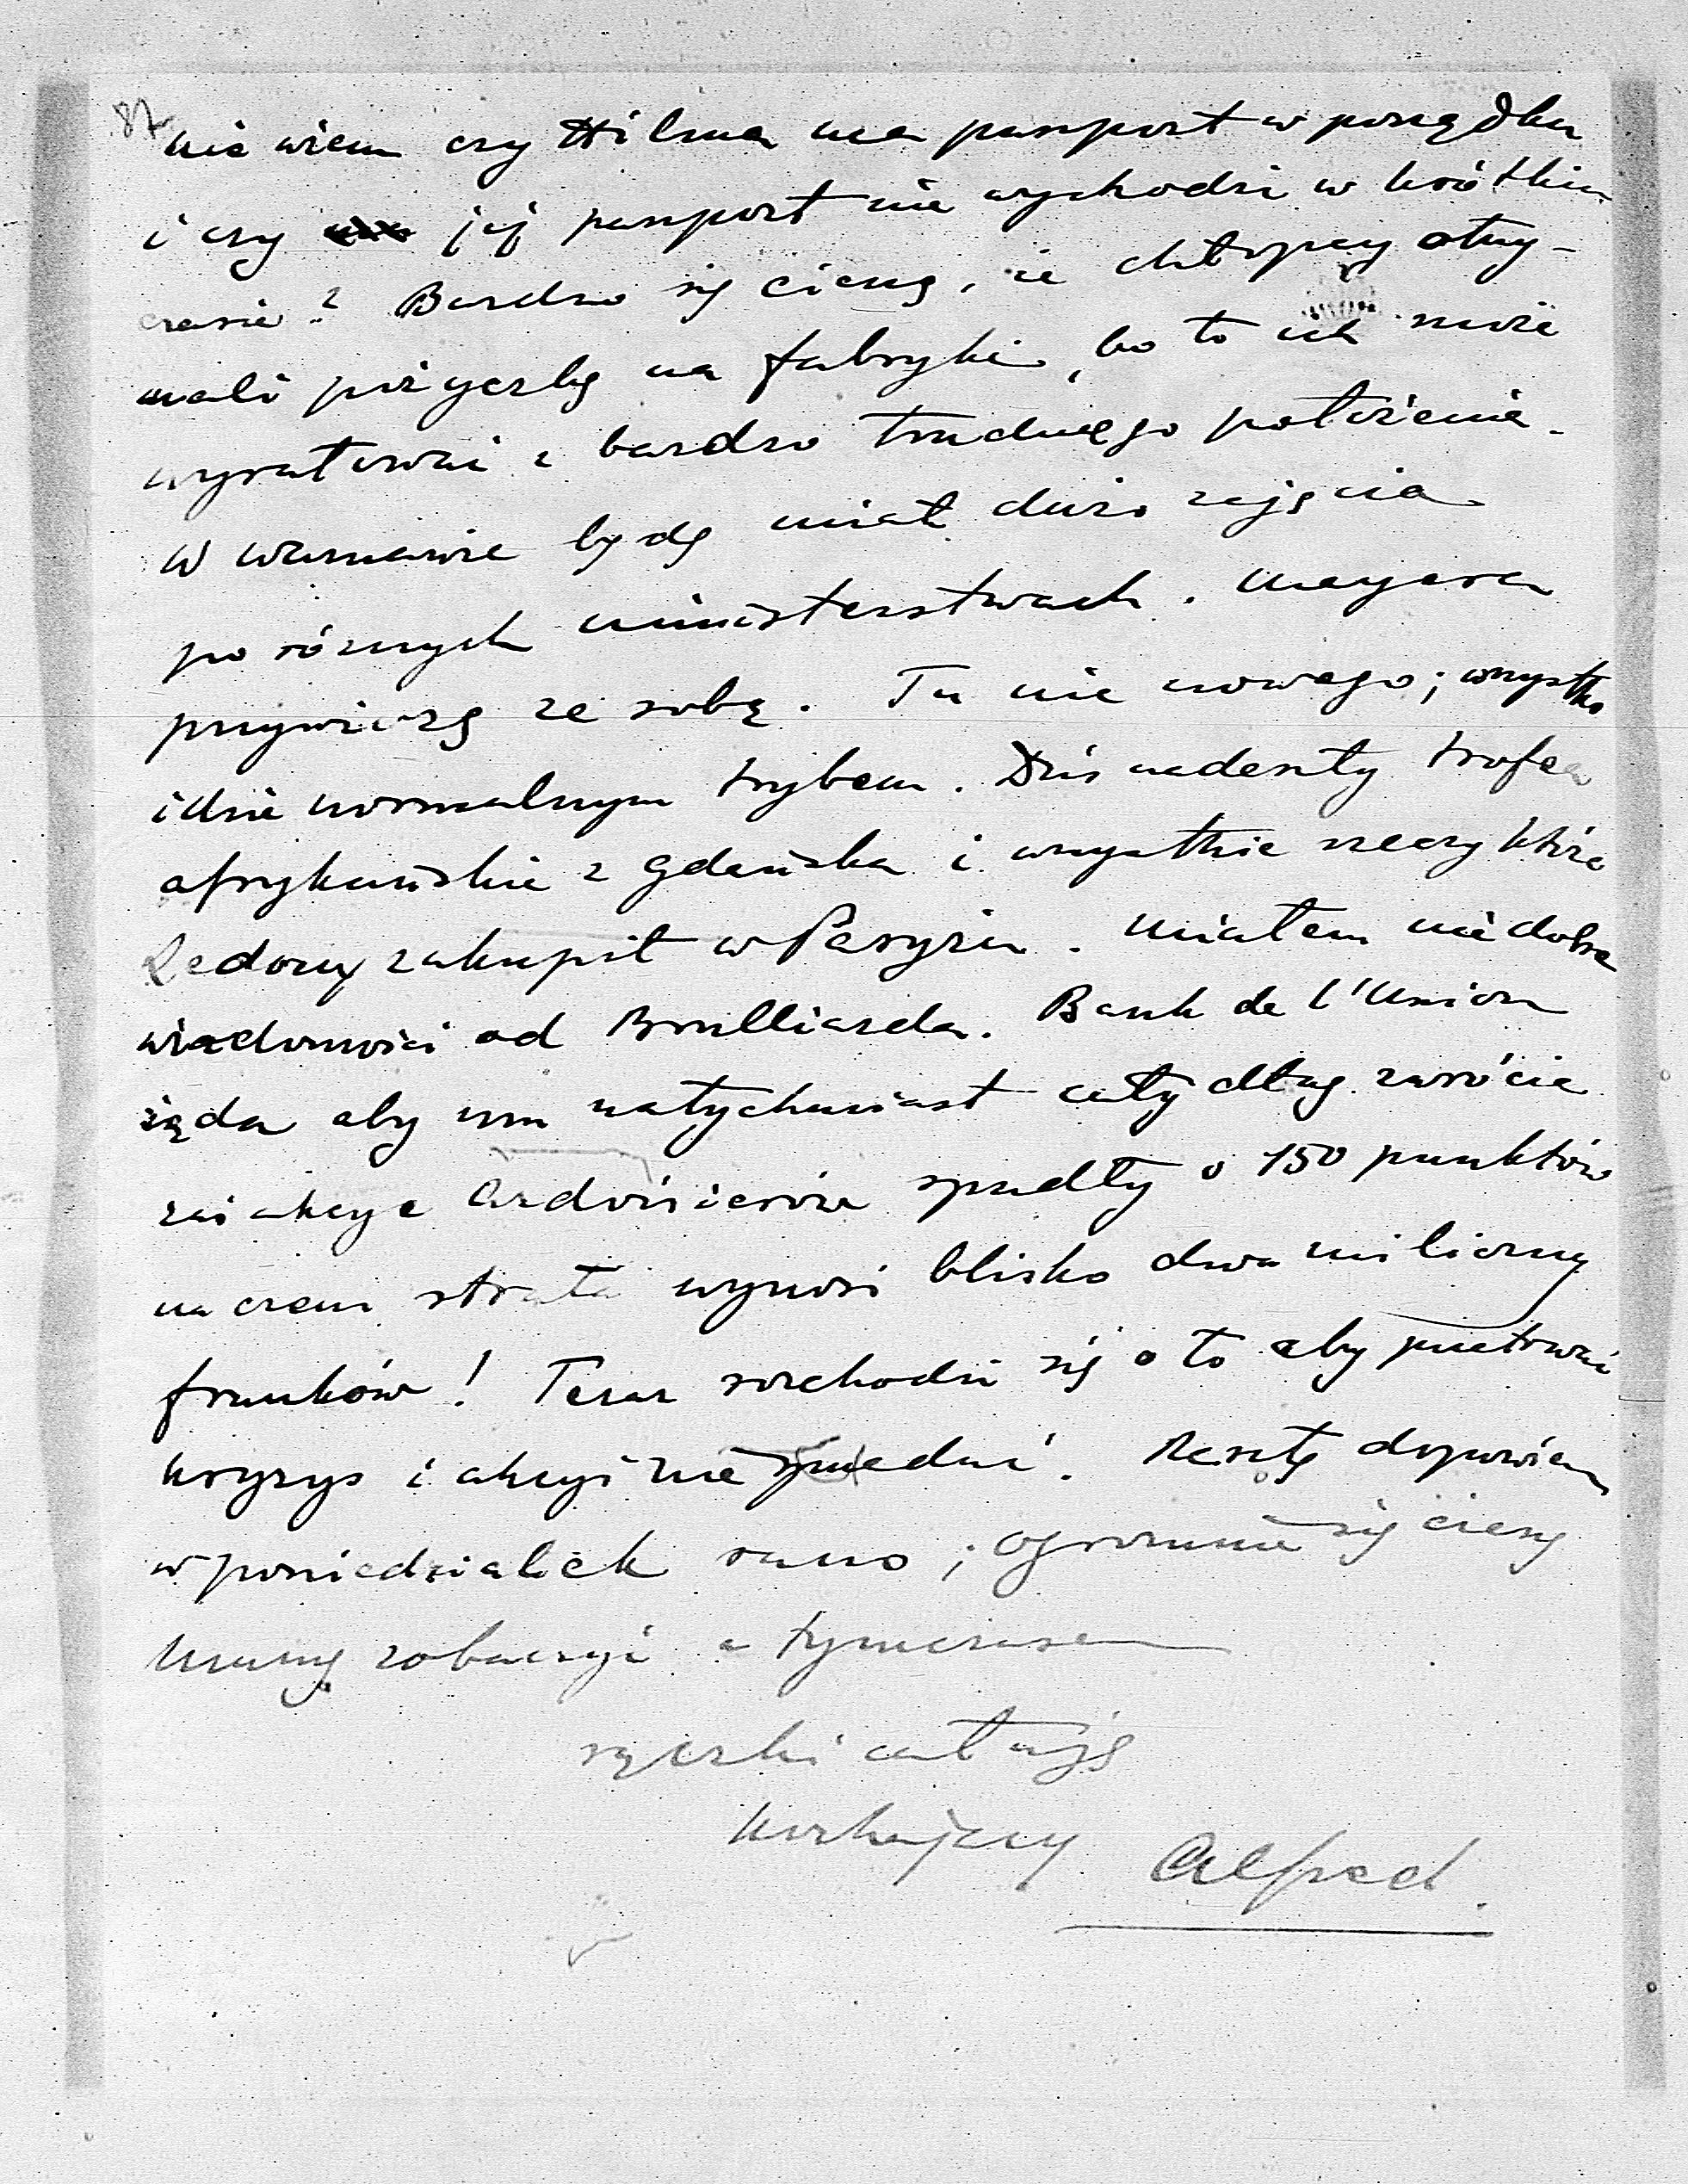 87
nie wiem czy Hilma ma paszport w porządku
i czy jej paszport nie wychodzi w krótkim
czasie? Bardzo się cieszę, że chłopcy otrzy-
mali pożyczkę na fabryki, bo to ich może
wyratować z bardzo trudnego położenia.
W Warszawie będę miał dużo zajęcia
po różnych ministerstwach. Meyera
przywiozę ze sobą. Tu nic nowego; wszystko
idzie normalnym trybem. Dziś nadeszły trofea
afrykańskie z Gdańska i wszystkie rzeczy które
zakupił w Paryżu. Miałem niedobre
wiadomości od Brulliarda. Bank de l'Union
żąda aby mu natychmiast cały dług zwrócić
zaś akcye spadły o 150 punktów
na czem strata wynosi blisko dwa miliony
franków! Teraz rozchodzi się o to aby przetrwać
kryzys i akcyi nie sprzedać. Resztę dopowiem
w poniedziałek rano; ogromnie się cieszę
Mamę zobaczyć a tymczasem
rączki całuję
kochający Alfred.